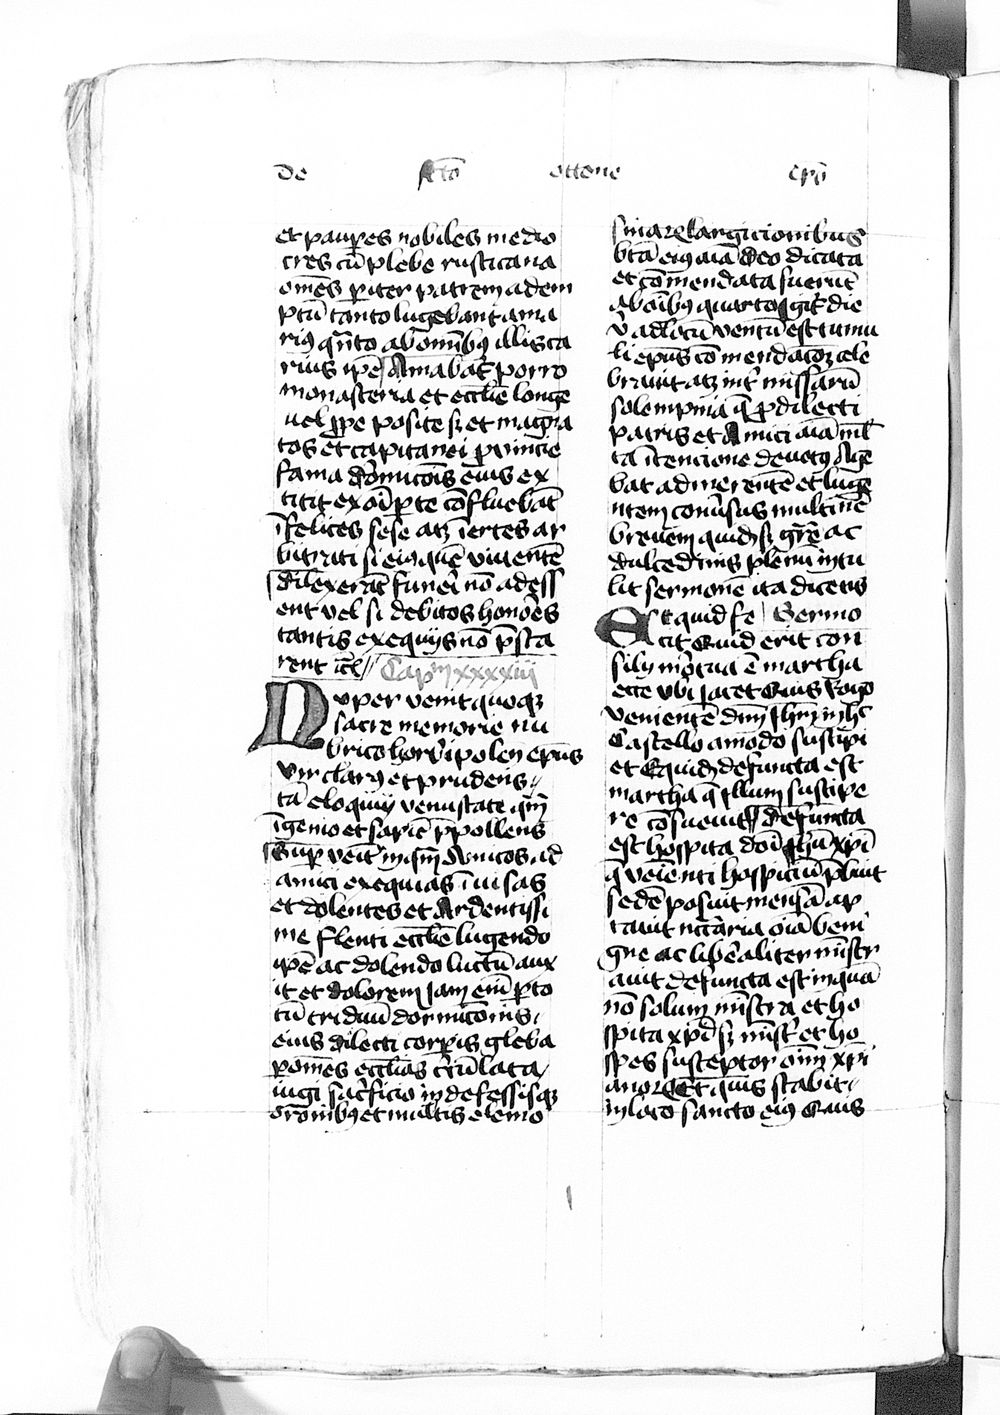 de sc̄to ottone ep̄o
et paup̲es nobiles medio
cres cū plebe rusticana
om̄es p̲iter patrem adem
ptū tanto lugebant ama
rius qn̄to ab om̄ibꝫ illis ca
rius ip̄e Amabat̄ porro
monasteria et eccl̄ie longe
uel p̲pe posite sꝫ et magn̄a
tos et capitanei p̲uincie
fama dormicōis eius ex
titit ex oī p̲te cōfluebāt
īfelices sese atqꝫ īertes ar
bitrati si eiꝯ quē viuentē
dilexerāt funeri nō adess
ent vel si debitos honōes
tantis exequijs nō p̄sta
rent
Cap̄m xxxxiii
Nuper venit quoqꝫ
sacre memorie im
brico herbipolen̄ ep̄us
Vir clarꝯ et prudens
tā eloquij venustate qm̄
īgenio et sapiē p̄pollens
Sup̲veīt in sm̄ Amicos ad
amici exequias īuisas
et dolentes et Ardentissi
me flenti eccl̄ie lugendo
ip̄e ac dolendo luctū aux
it et dolorem Jam enī p̲to
tū triduū dormicōnis
eius dilecti corp̲is gleba
p̲ om̄es eccl̄ias c̄rcūlata
iugi sac̄rficio indefessisqꝫ
orōnibꝫ et multis elemo
sinaꝝ largicionibus
btā eiꝯ aīa deo dicata
et cōmendata fuerūt
Ab oībꝯ quarto igit̄ die
v̄ ad locū ventū est tumu
li ep̄us cōmendacōꝫ cele
brauit atqꝫ int̄ missarū
solempnia q̄ p̲ dilecti
patris et Amici aīa ml̄
ta ītencione deuotꝯ Age
bat ad merentē et luge
ntem conūsus multū nē
breuem quidꝫ sꝫ grāe ac
dulcedinis plenū intu
lit sermonē ita dicens
Et quid fe Sermo
cit Quid erit con
silij mortua ē martha
ecce vbi Jacet Quis Rogo
venientē dn̄m Jhm̄ in hoc
Castello amodo suscip̲i
et Equidꝫ defuncta est
martha q̄ Jllum suscipe
re cōsueuit defuncta
est hospita dn̄i Jhū xp̄i
q̄ veienti hospiciū p̲buit
sedē posuit mensā ap
tauit nccāria oīa beni
gne ac libēaliter mīstr
auit defuncta est inquā
nō solum mīstra et ho
spita xp̄i sꝫ mīst̄ et ho
spes susceptor om̄m xp̄i
anoꝝ Et quis stabit
in loco sancto eiꝯ Quis